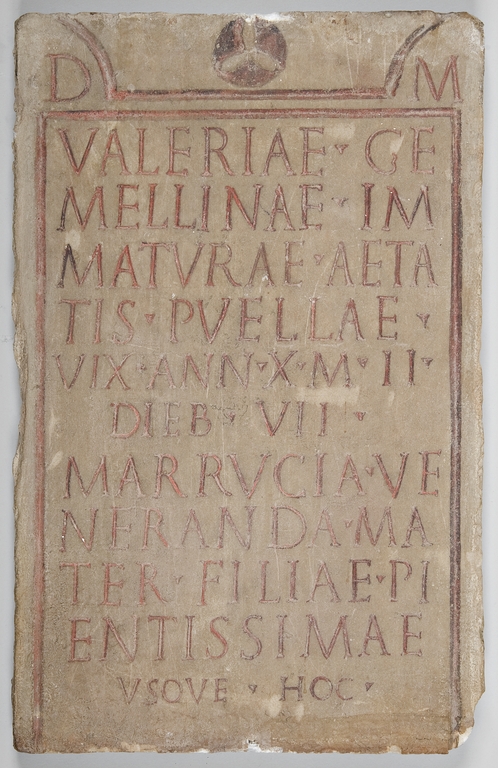 D M
VALERIAE · GE
MELLINAE · IM
MATVRAE · AETA
TIS · PVELLAE ·
VIX · ANN · X · M · II ·
DIEB · VII ·
MARRVCIA · VE
NERANDA · MA
TER · FILIAE · PI
ENTISSIMAE
VSQVE · HOC ·